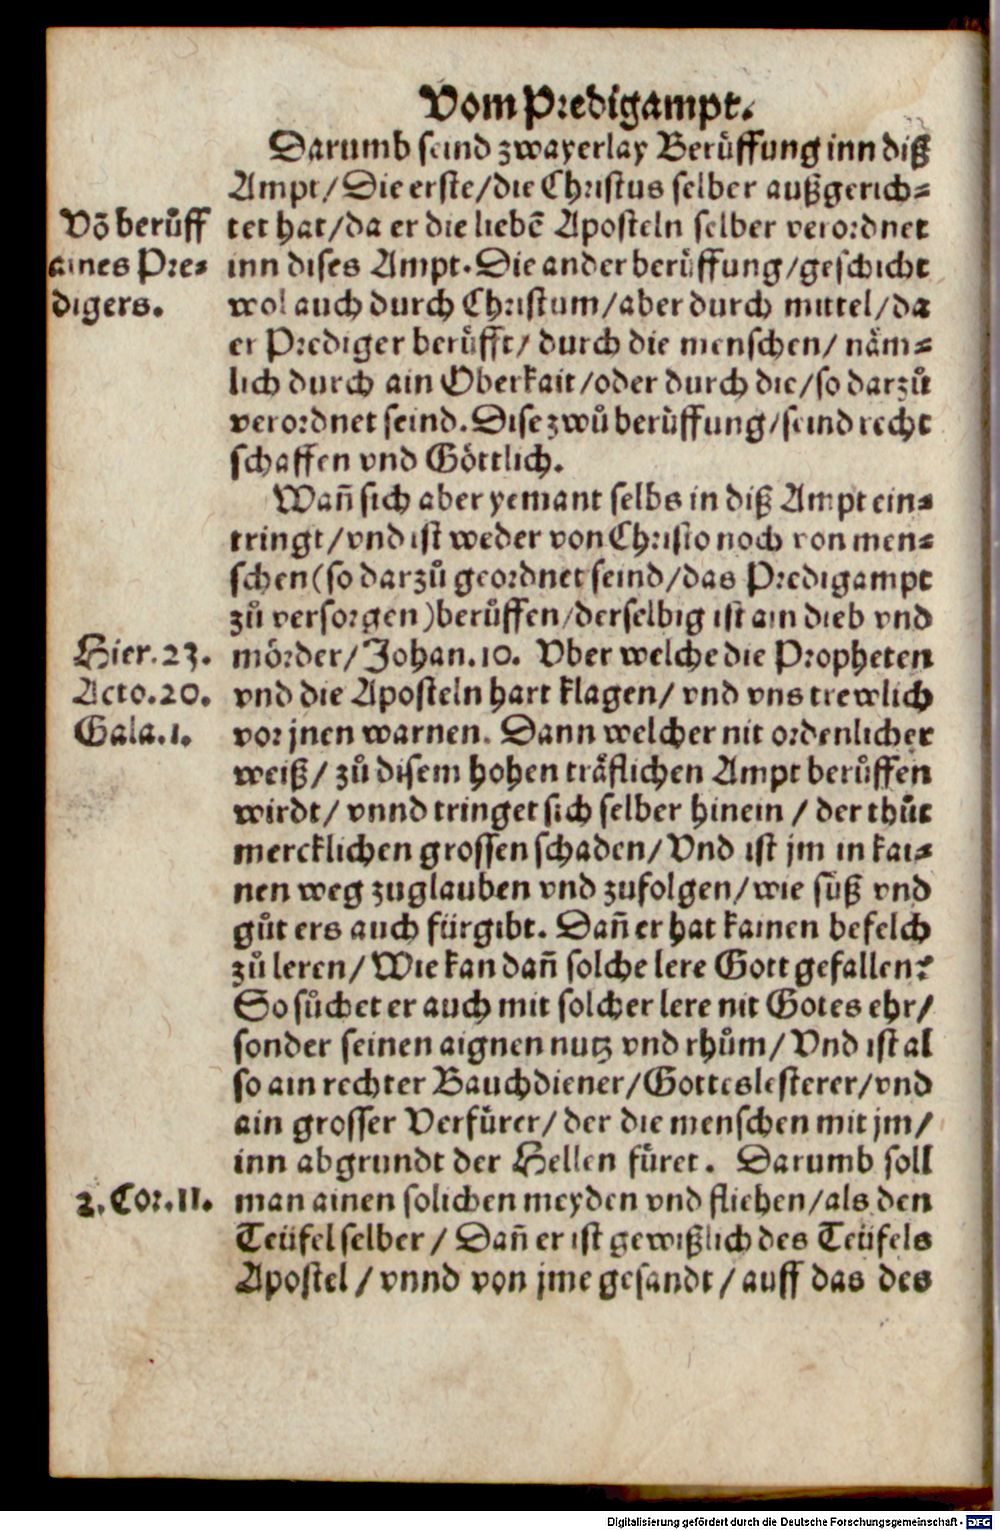 Vom Predigampt.
Darumb seind zwayerlay Berůffung inn diß
Ampt/Die erste/die Christus selber außgerich-
Võ berůff
aines Pre-
digers.
tet hat/da er die liebẽ Aposteln selber verordnet
inn dises Ampt. Die ander berůffung/geschicht
wol auch durch Christum/aber durch mittel/da
er Prediger berůfft/ durch die menschen/ näm-
lich durch ain Oberkait/oder durch die/so darzů
verordnet seind. Dise zwů berůffung/seind recht
schaffen vnd Göttlich.
Wañ sich aber yemant selbs in diß Ampt ein-
tringt/vnd ist weder von Christo noch von men-
schen(so darzů geordnet seind/das Predigampt
zů versorgen)berůffen/derselbig ist ain dieb vnd
Hier. 23.
Acto. 20.
Gala. 1.
mörder/Johan. 10. Vber welche die Propheten
vnd die Aposteln hart klagen/ vnd vns trewlich
vor jnen warnen. Dann welcher nit ordenlicher
weiß/ zů disem hohen träflichen Ampt berůffen
wirdt/ vnnd tringet sich selber hinein / der thůt
mercklichen grossen schaden/ Vnd ist jm in kai-
nen weg zuglauben vnd zufolgen/wie süß vnd
gůt ers auch fürgibt. Dañ er hat kainen befelch
zů leren/ Wie kan dañ solche lere Gott gefallen?
So sůchet er auch mit solcher lere nit Gotes ehr/
sonder seinen aignen nutz vnd rhům/ Vnd ist al
so ain rechter Bauchdiener/Gotteslesterer/vnd
ain grosser Verfürer/ der die menschen mit jm/
inn abgrundt der Hellen füret. Darumb soll
2. Cor. 11.
man ainen solichen meyden vnd fliehen/als den
Teüfel selber / Dañ er ist gewißlich des Teüfels
Apostel / vnnd von jme gesandt / auff das des
Digitalisierung gefördert durch die Deutsche Forschungsgemeinschaft - DFG